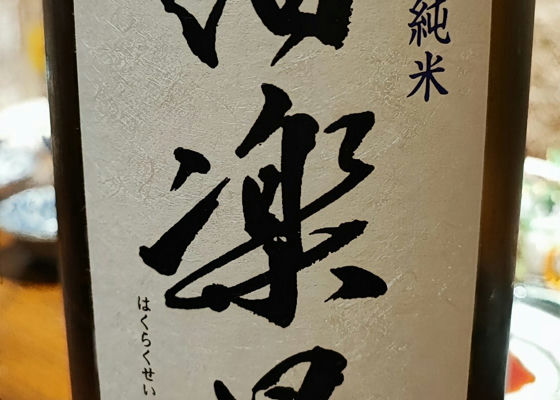 純米
伯楽星
はくらくせい